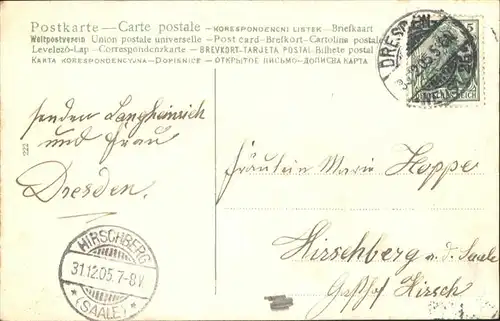 Postkarte — Carte postale — KORESPONDENČNI LISTEK — Briefkaart
Weltpostverein Union postale universelle — Post card — Brefkort — Cartolina postale
Levelező-Lap — Correspondenzkarte — BREVKORT — TARJETA POSTAL — Bilhete postal
KARTA KORESPONDENCYJNA — DOPISNICE — ОТКРЫТОЕ ПИСЬМО — ДОПИСНА КАРТА
DRESDEN
5
DEUTSCHES REICH
senden Langheinrich
und Frau
Dresden.
222
Fräulein Marie Hoppe
Hirschberg a. d. Saale
Gasthof Hirsch
HIRSCHBERG
31.12.05. 7-8V.
* (SAALE) *